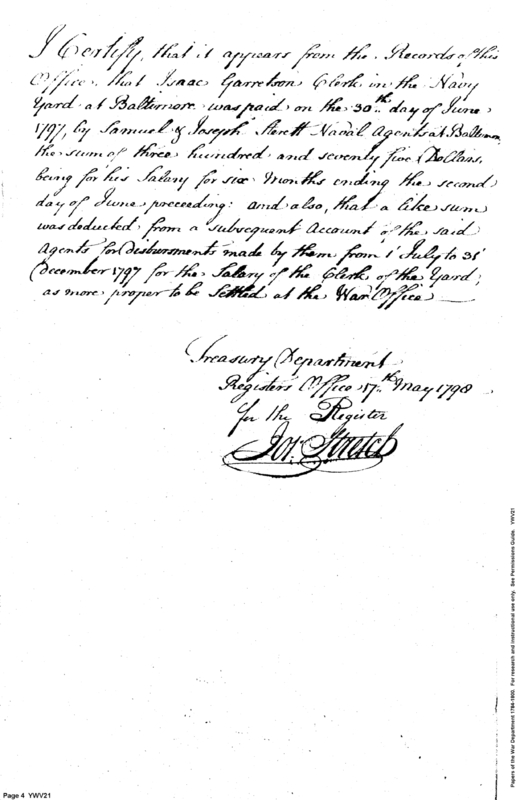 I Certify, that it appears from the Records of this
Office, that Isaac Garretson Clerk in the Navy
Yard at Baltimore was paid on the 30th day of June
1797, by Samuel & Joseph Sterett Naval Agents at Baltimore
the sum of three hundred and seventy five Dollars,
being for his Salary for six Months ending the second
day of June preceeding: and also, that a like sum
was deducted from a subsequent Account of the said
Agents for Disbursments made by them from 1 July to 31
December 1797 for the Salary of the Clerk of the Yard,
as more proper to be Settled at the War Office
Treasury Department
Registers Office 17th May 1798
for the Register
Jos: Stretch
Page 4 YWV21
Papers of the War Department 1784-1800. For research and instructional use only. See Permissions Guide. YWV21